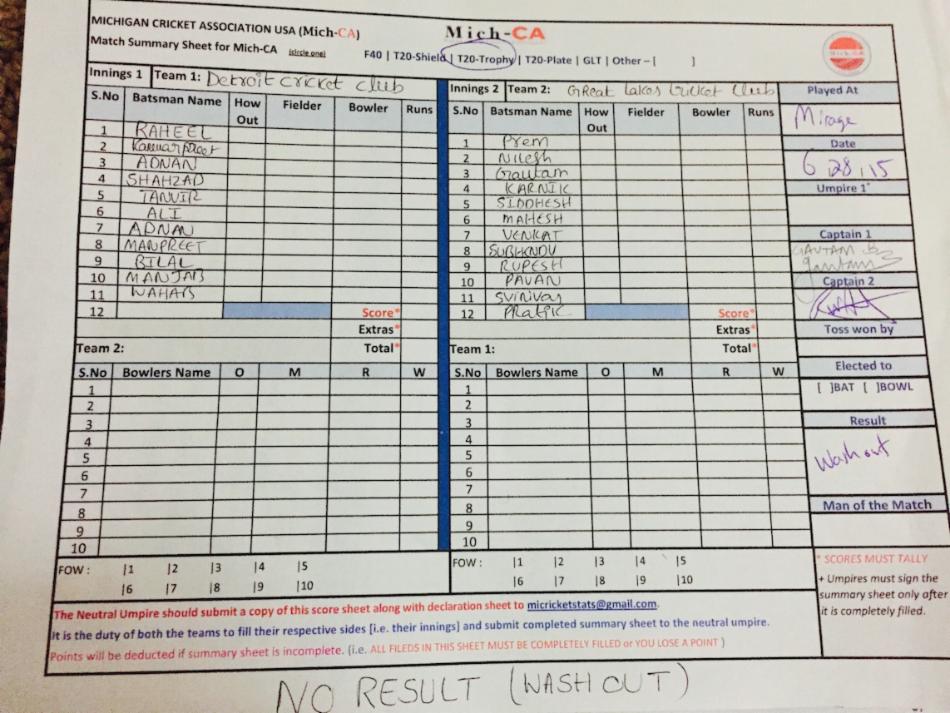 MICHIGAN CRICKET ASSOCIATION USA (Mich-CA)
Mich-CA
Match Summary Sheet for Mich-CA (circle one) F40 | T20-Shield | T20-Trophy | T20-Plate | GLT | Other – [ ]
Innings 1 Team 1: Detroit Cricket Club
S.No Batsman Name How Out Fielder Bowler Runs
1 RAHEEL
2 Kanwarpreet
3 ADNAN
4 SHAHZAD
5 TANVIR
6 ALI
7 ADNAN
8 MANPREET
9 BILAL
10 MANJAB
11 WAHAB
12 Score*
Extras*
Team 2: Total*
S.No Bowlers Name O M R W
1
2
3
4
5
6
7
8
9
10
FOW : |1 |2 |3 |4 |5
|6 |7 |8 |9 |10
Innings 2 Team 2: GReat Lakes Cricket Club
S.No Batsman Name How Out Fielder Bowler Runs
1 Prem
2 Nilesh
3 Gautam
4 KARNIK
5 SIDDHESH
6 MAHESH
7 VENKAT
8 SUBHENDU
9 RUPESH
10 PAVAN
11 Srinivas
12 PRATIK Score*
Extras*
Team 1: Total*
S.No Bowlers Name O M R W
1
2
3
4
5
6
7
8
9
10
FOW : |1 |2 |3 |4 |5
|6 |7 |8 |9 |10
Played At
Mirage
Date
6 28 15
Umpire 1*
Captain 1
GAUTAM
gautam
Captain 2
Toss won by
Elected to
[ ]BAT [ ]BOWL
Result
Wash out
Man of the Match
* SCORES MUST TALLY
+ Umpires must sign the
summary sheet only after
it is completely filled.
The Neutral Umpire should submit a copy of this score sheet along with declaration sheet to micricketstats@gmail.com.
It is the duty of both the teams to fill their respective sides [i.e. their innings] and submit completed summary sheet to the neutral umpire.
Points will be deducted if summary sheet is incomplete. (i.e. ALL FILEDS IN THIS SHEET MUST BE COMPLETELY FILLED or YOU LOSE A POINT )
NO RESULT (WASH OUT)